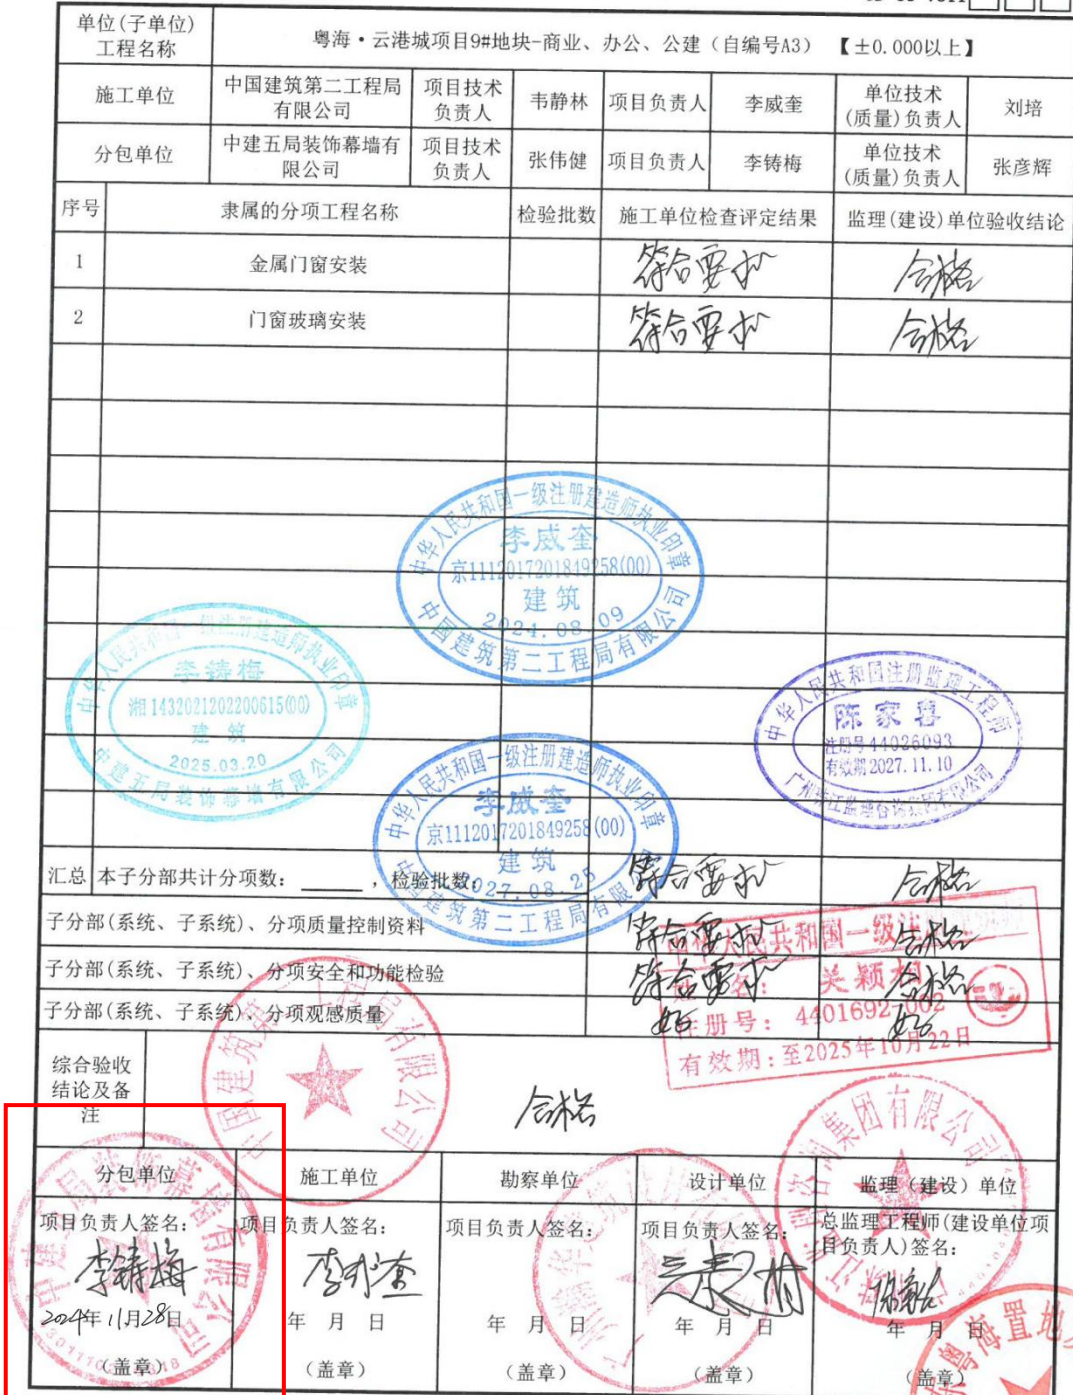 单位(子单位)
工程名称
粤海·云港城项目9#地块-商业、办公、公建（自编号A3）【±0.000以上】
施工单位
中国建筑第二工程局
有限公司
项目技术
负责人
韦静林
项目负责人
李威奎
单位技术
(质量)负责人
刘培
分包单位
中建五局装饰幕墙有
限公司
项目技术
负责人
张伟健
项目负责人
李铸梅
单位技术
(质量)负责人
张彦辉
序号
隶属的分项工程名称
检验批数
施工单位检查评定结果
监理(建设)单位验收结论
1
金属门窗安装
符合要求
合格
2
门窗玻璃安装
符合要求
合格
中华人民共和国一级注册建造师执业印章
李威奎
京1112017201849258(00)
建筑
2024.08.09
中国建筑第二工程局有限公司
中华人民共和国一级注册建造师执业印章
李铸梅
湘1432021202200615(00)
建筑
2025.03.20
中建五局装饰幕墙有限公司
中华人民共和国注册监理工程师
注册号44026093
有效期2027.11.10
中华人民共和国一级注册建造师执业印章
李威奎
京1112017201849258(00)
建筑
2027.08.25
中国建筑第二工程局有限
汇总
本子分部共计分项数：，检验批数：
符合要求
合格
子分部(系统、子系统)、分项质量控制资料
符合要求
合格
子分部(系统、子系统)、分项安全和功能检验
符合要求
合格
子分部(系统、子系统)、分项观感质量
好
好
中华人民共和国一级注册
姓名：
注册号：4401692-002
有效期：至2025年10月22日
综合验收
结论及备
注
合格
中国建筑第二工程局有限公司
分包单位
施工单位
勘察单位
设计单位
监理（建设）单位
项目负责人签名：
李铸梅
2024年11月28日
（盖章）
项目负责人签名：
李威奎
年 月 日
（盖章）
项目负责人签名：
年 月 日
（盖章）
项目负责人签名：
年 月 日
（盖章）
总监理工程师(建设单位项
目负责人)签名：
年 月 日
（盖章）
中建五局装饰幕墙有限公司
咨询集团有限公司
粤海置地